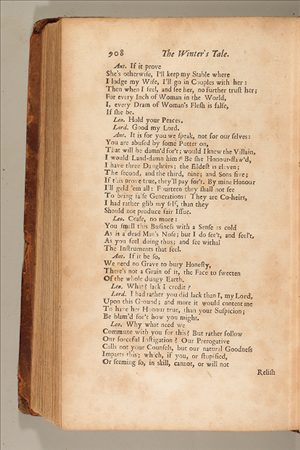 908 The Winter's Tale.
Ant. If it prove
She's otherwise, I'll keep my Stable where
I lodge my Wife, I'll go in Couples with her:
Then when I feel, and see her, no further trust her;
For every Inch of Woman in the World,
I, every Dram of Woman's Flesh is false,
If she be.
Leo. Hold your Peaces.
Lord. Good my Lord.
Ant. It is for you we speak, not for our selves:
You are abused by some Putter on,
That will be damn'd for't; would I knew the Villain,
I would Land-damn him: Be she Honour-flaw'd,
I have three Daughters; the Eldest is eleven;
The second, and the third, nine; and Sons five;
If this prove true, they'll pay for't. By mine Honour
I'll geld 'em all: Fourteen they shall not see
To bring false Generations: They are Co-heirs,
I had rather glib my self, than they
Should not produce fair Issue.
Leo. Cease, no more:
You smell this Business with a Sense as cold
As is a dead Man's Nose; but I do see't, and feel't,
As you feel doing thus; and see withal
The Instruments that feel.
Ant. If it be so,
We need no Grave to bury Honesty,
There's not a Grain of it, the Face to sweeten
Of the whole dungy Earth.
Leo. What? lack I credit?
Lord. I had rather you did lack than I, my Lord,
Upon this Ground; and more it would content me
To have her Honour true, than your Suspicion;
Be blam'd for't how you might.
Leo. Why what need we
Commute with you for this? But rather follow
Our forceful Instigation? Our Prerogative
Calls not your Counsels, but our natural Goodness
Imparts this; which, if you, or stupified,
Or seeming so, in skill, cannot, or will not
Relish